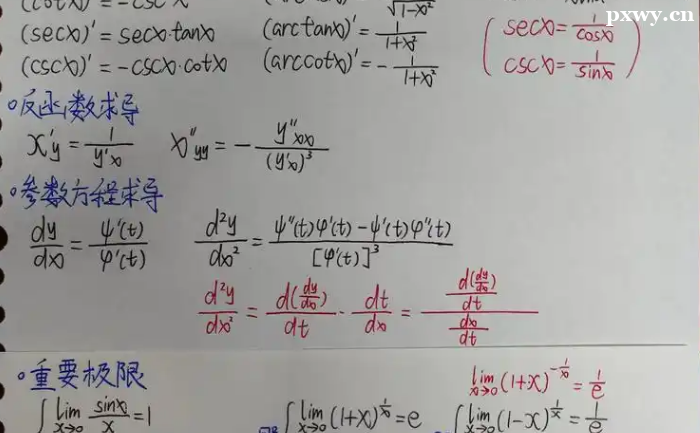 (cotx)' = -csc²x
pxwy.cn
√1-x²
(secx)' = secx·tanx (arctanx)' = 1/(1+x²) (secx = 1/cosx
(cscx)' = -cscx·cotx (arccotx)' = -1/(1+x²) cscx = 1/sinx)
反函数求导
x'y = 1/y'x x''yy = -y''xx/(y'x)³
参数方程求导
dy/dx = ψ'(t)/φ'(t) d²y/dx² = (ψ''(t)φ'(t)-ψ'(t)φ''(t))/[φ'(t)]³
d²y/dx² = d(dy/dx)/dt · dt/dx = (d(dy/dx)/dt)/(dx/dt)
重要极限 lim x→0 (1+x)^(-1/x) = 1/e
lim x→0 sinx/x = 1 lim x→0 (1+x)^(1/x) = e lim x→0 (1-x)^(1/x) = 1/e